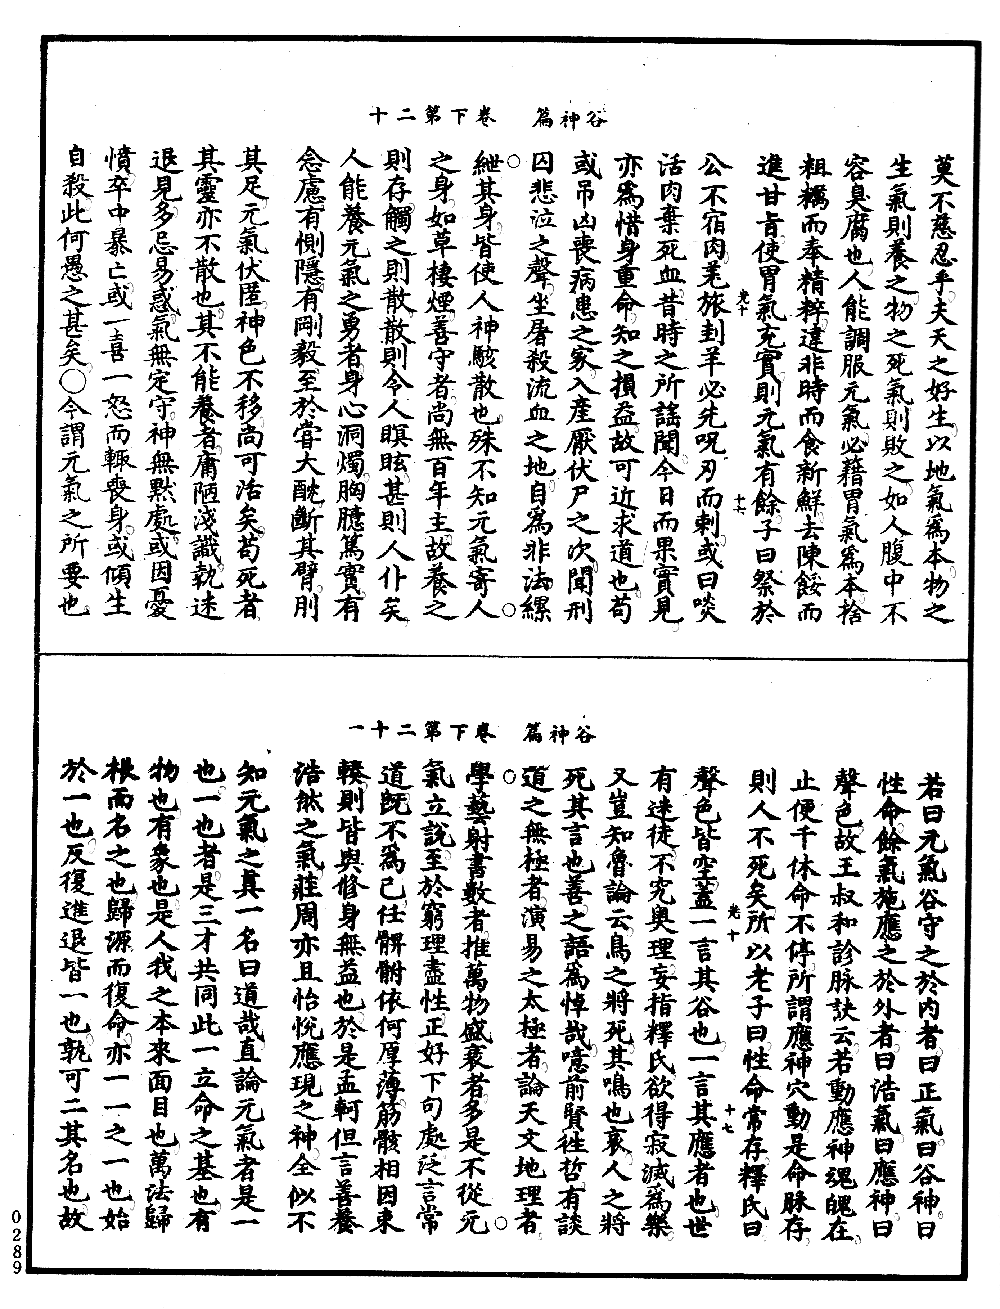 谷神篇　卷下第二十
莫不慈忍乎夫天之好生以地氣爲本物之
生氣則養之物之死氣則敗之如人腹中不
容臭腐也人能調服元氣必藉胃氣爲本捨
粗糲而奉精粹違非時而食新鮮去陳餒而
進甘肯使胃氣充實則元氣有餘子曰祭於
光十
十七
公不宿肉羌旅刲羊必先呪刃而刺或曰啖
活肉棄死血昔時之所謠聞今日而果實見
亦爲惜身重命知之損益故可近求道也苟
或吊凶喪病患之家入產厭伏尸之次聞刑
囚悲泣之聲坐屠殺流血之地自爲非法縲
紲其身皆使人神駭散也殊不知元氣寄人
之身如草棲煙善守者尚無百年主故養之
則存觸之則散散則令人瞑眩甚則人仆矣
人能養元氣之勇者身心洞燭胸臆篤實有
念慮有惻隱有剛毅至於嘗大酖斷其臂刖
其足元氣伏匿神色不移尚可活矣苟死者
其靈亦不散也其不能養者庸陋淺識執迷
退見多忌易惑氣無定守神無黙處或因憂
憤卒中暴亡或一喜一怒而輙喪身或傾生
自殺此何愚之甚矣○今謂元氣之所要也
谷神篇　卷下第二十一
若曰元氣谷守之於內者曰正氣曰谷神曰
性命餘氣施應之於外者曰浩氣曰應神曰
聲色故王叔和診脉訣云若動應神魂魄在
止便千休命不停所謂應神穴動是命脉存
則人不死矣所以老子曰性命常存釋氏曰
光十
十七
聲色皆空蓋一言其谷也一言其應者也世
有迷徒不究奧理妄指釋氏欲得寂滅爲樂
又豈知魯論云鳥之將死其鳴也哀人之將
死其言也善之語爲悼哉噫前賢徃哲有談
道之無極者演易之太極者論天文地理者
學藝射書數者推萬物盛衰者多是不從元
氣立說至於窮理盡性正好下句處泛言常
道旣不爲己任髒腑依何厚薄筋骸相因東
輳則皆與修身無益也於是孟軻但言善養
浩然之氣莊周亦且怡悅應現之神全似不
知元氣之眞一名曰道哉直論元氣者是一
也一也者是三才共同此一立命之基也有
物也有象也是人我之本來面目也萬法歸
根而名之也歸源而復命亦一一之一也始
於一也反復進退皆一也孰可二其名也故
0289